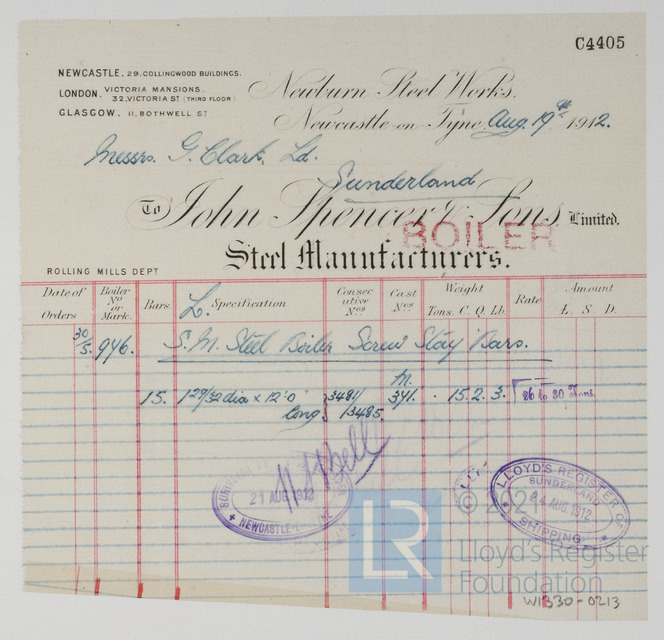 C4405
NEWCASTLE. 29. COLLINGWOOD BUILDINGS.
LONDON. VICTORIA MANSIONS.
32. VICTORIA ST (THIRD FLOOR)
GLASGOW. 11. BOTHWELL ST
Newburn Steel Works.
Newcastle-on-Tyne Aug. 19th 1912.
Messrs. G. Clark, Ld.
Sunderland
To John Spencer & Sons Limited.
BOILER
Steel Manufacturers.
ROLLING MILLS DEPT
Date of Orders Boiler No or Mark. Bars. L. Specification Consecutive Nos Cast Nos Weight Tons. C. Q. Lb. Rate Amount L. S. D.
30/5. 946. S. M. Steel Boiler Screw Stay Bars.
15. 1 29/32 dia x 12'0 long 3481/13485. M. 341. · 15. 2. 3. 26 to 30 Tons.
21 AUG 1912
NEWCASTLE
LLOYD'S REGISTER OF
SUNDERLAND
AUG 1912
SHIPPING
LR
© 2021
Lloyd's Register
Foundation
W1330-0213